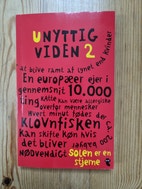 UNYTTIG
VIDEN 2
at blive ramt af lynet end kvinder
En europæer ejer i
gennemsnit 10.000
ting Katte kan være allergiske
overfor mennesker
Hvert minut fødes der
Klovnfisken
kan skifte køn hvis
det bliver
nødvendigt Solen er en
stjerne